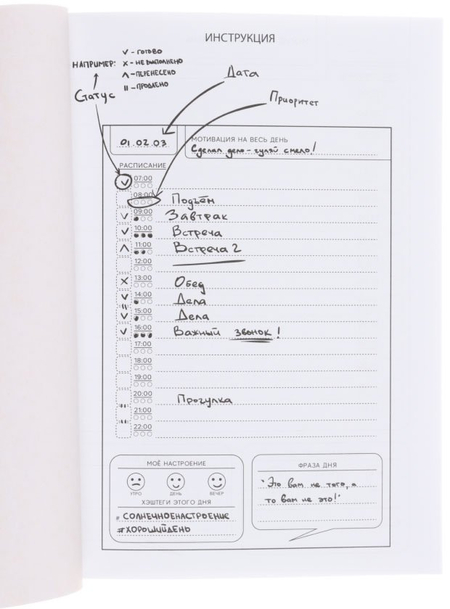 ИНСТРУКЦИЯ
НАПРИМЕР:
✓ - ГОТОВО
× - НЕ ВЫПОЛНЕНО
∧ - ПЕРЕНЕСЕНО
II - ПРОДЛЕНО
Статус
Дата
Приоритет
01.02.03
МОТИВАЦИЯ НА ВЕСЬ ДЕНЬ
Сделал дело - гуляй смело!
РАСПИСАНИЕ
07:00
08:00 Подъём
09:00 Завтрак
10:00 Встреча
11:00 Встреча 2
12:00
13:00 Обед
14:00 Дела
15:00 Дела
16:00 Важный звонок!
17:00
18:00
19:00
20:00 Прогулка
21:00
22:00
МОЁ НАСТРОЕНИЕ
УТРО ДЕНЬ ВЕЧЕР
ХЭШТЕГИ ЭТОГО ДНЯ
#СОЛНЕЧНОЕНАСТРОЕНИЕ
#ХОРОШИЙДЕНЬ
ФРАЗА ДНЯ
"Это вам не того, а
то вам не это!"